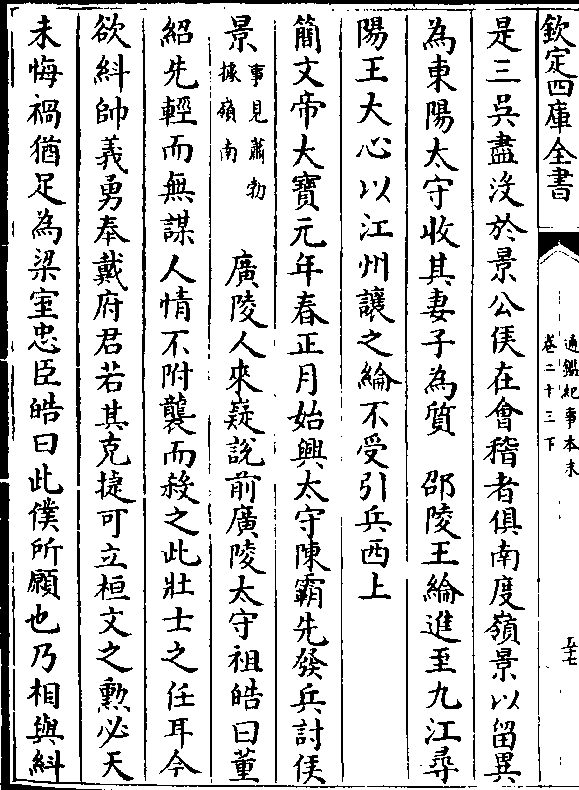 欽定四庫全書
通鑑紀事本末
卷二十三下
五十七
是三吳盡沒於景公侯在會稽者俱南度嶺景以留異
為東陽太守收其妻子為質　邵陵王綸進至九江尋
陽王大心以江州讓之綸不受引兵西上
簡文帝大寶元年春正月始興太守陳霸先發兵討侯
景事見蕭勃據嶺南　廣陵人來嶷説前廣陵太守祖皓曰董
紹先輕而無謀人情不附襲而殺之此壯士之任耳今
欲紏帥義勇奉戴府君若其克捷可立桓文之勲必天
未悔禍猶足為梁室忠臣皓曰此僕所願也乃相與紏